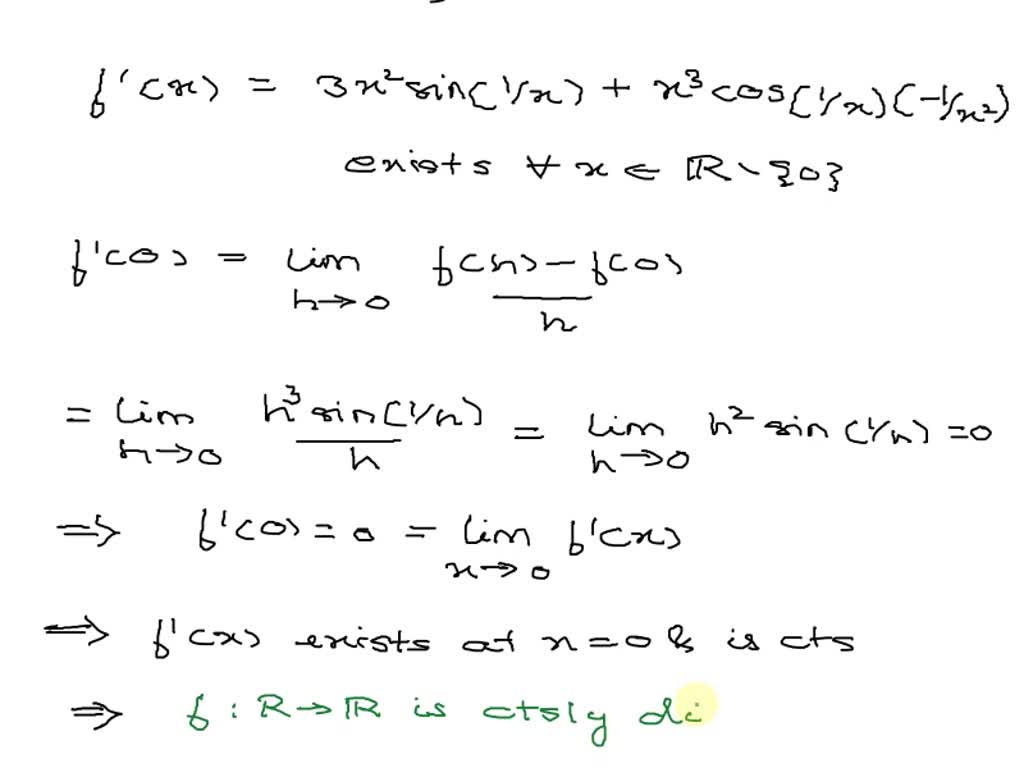 f'(x) = 3x² sin(1/x) + x³ cos(1/x)(-1/x²)
exists ∀ x ∈ ℝ \ {0}
f'(0) = lim h→0 f(h) - f(0) / h
= lim h→0 h³ sin(1/h) / h = lim h→0 h² sin(1/h) = 0
⇒ f'(0) = 0 = lim x→0 f'(x)
⇒ f'(x) exists at x = 0 & is cts
⇒ f : ℝ → ℝ is ctsly di